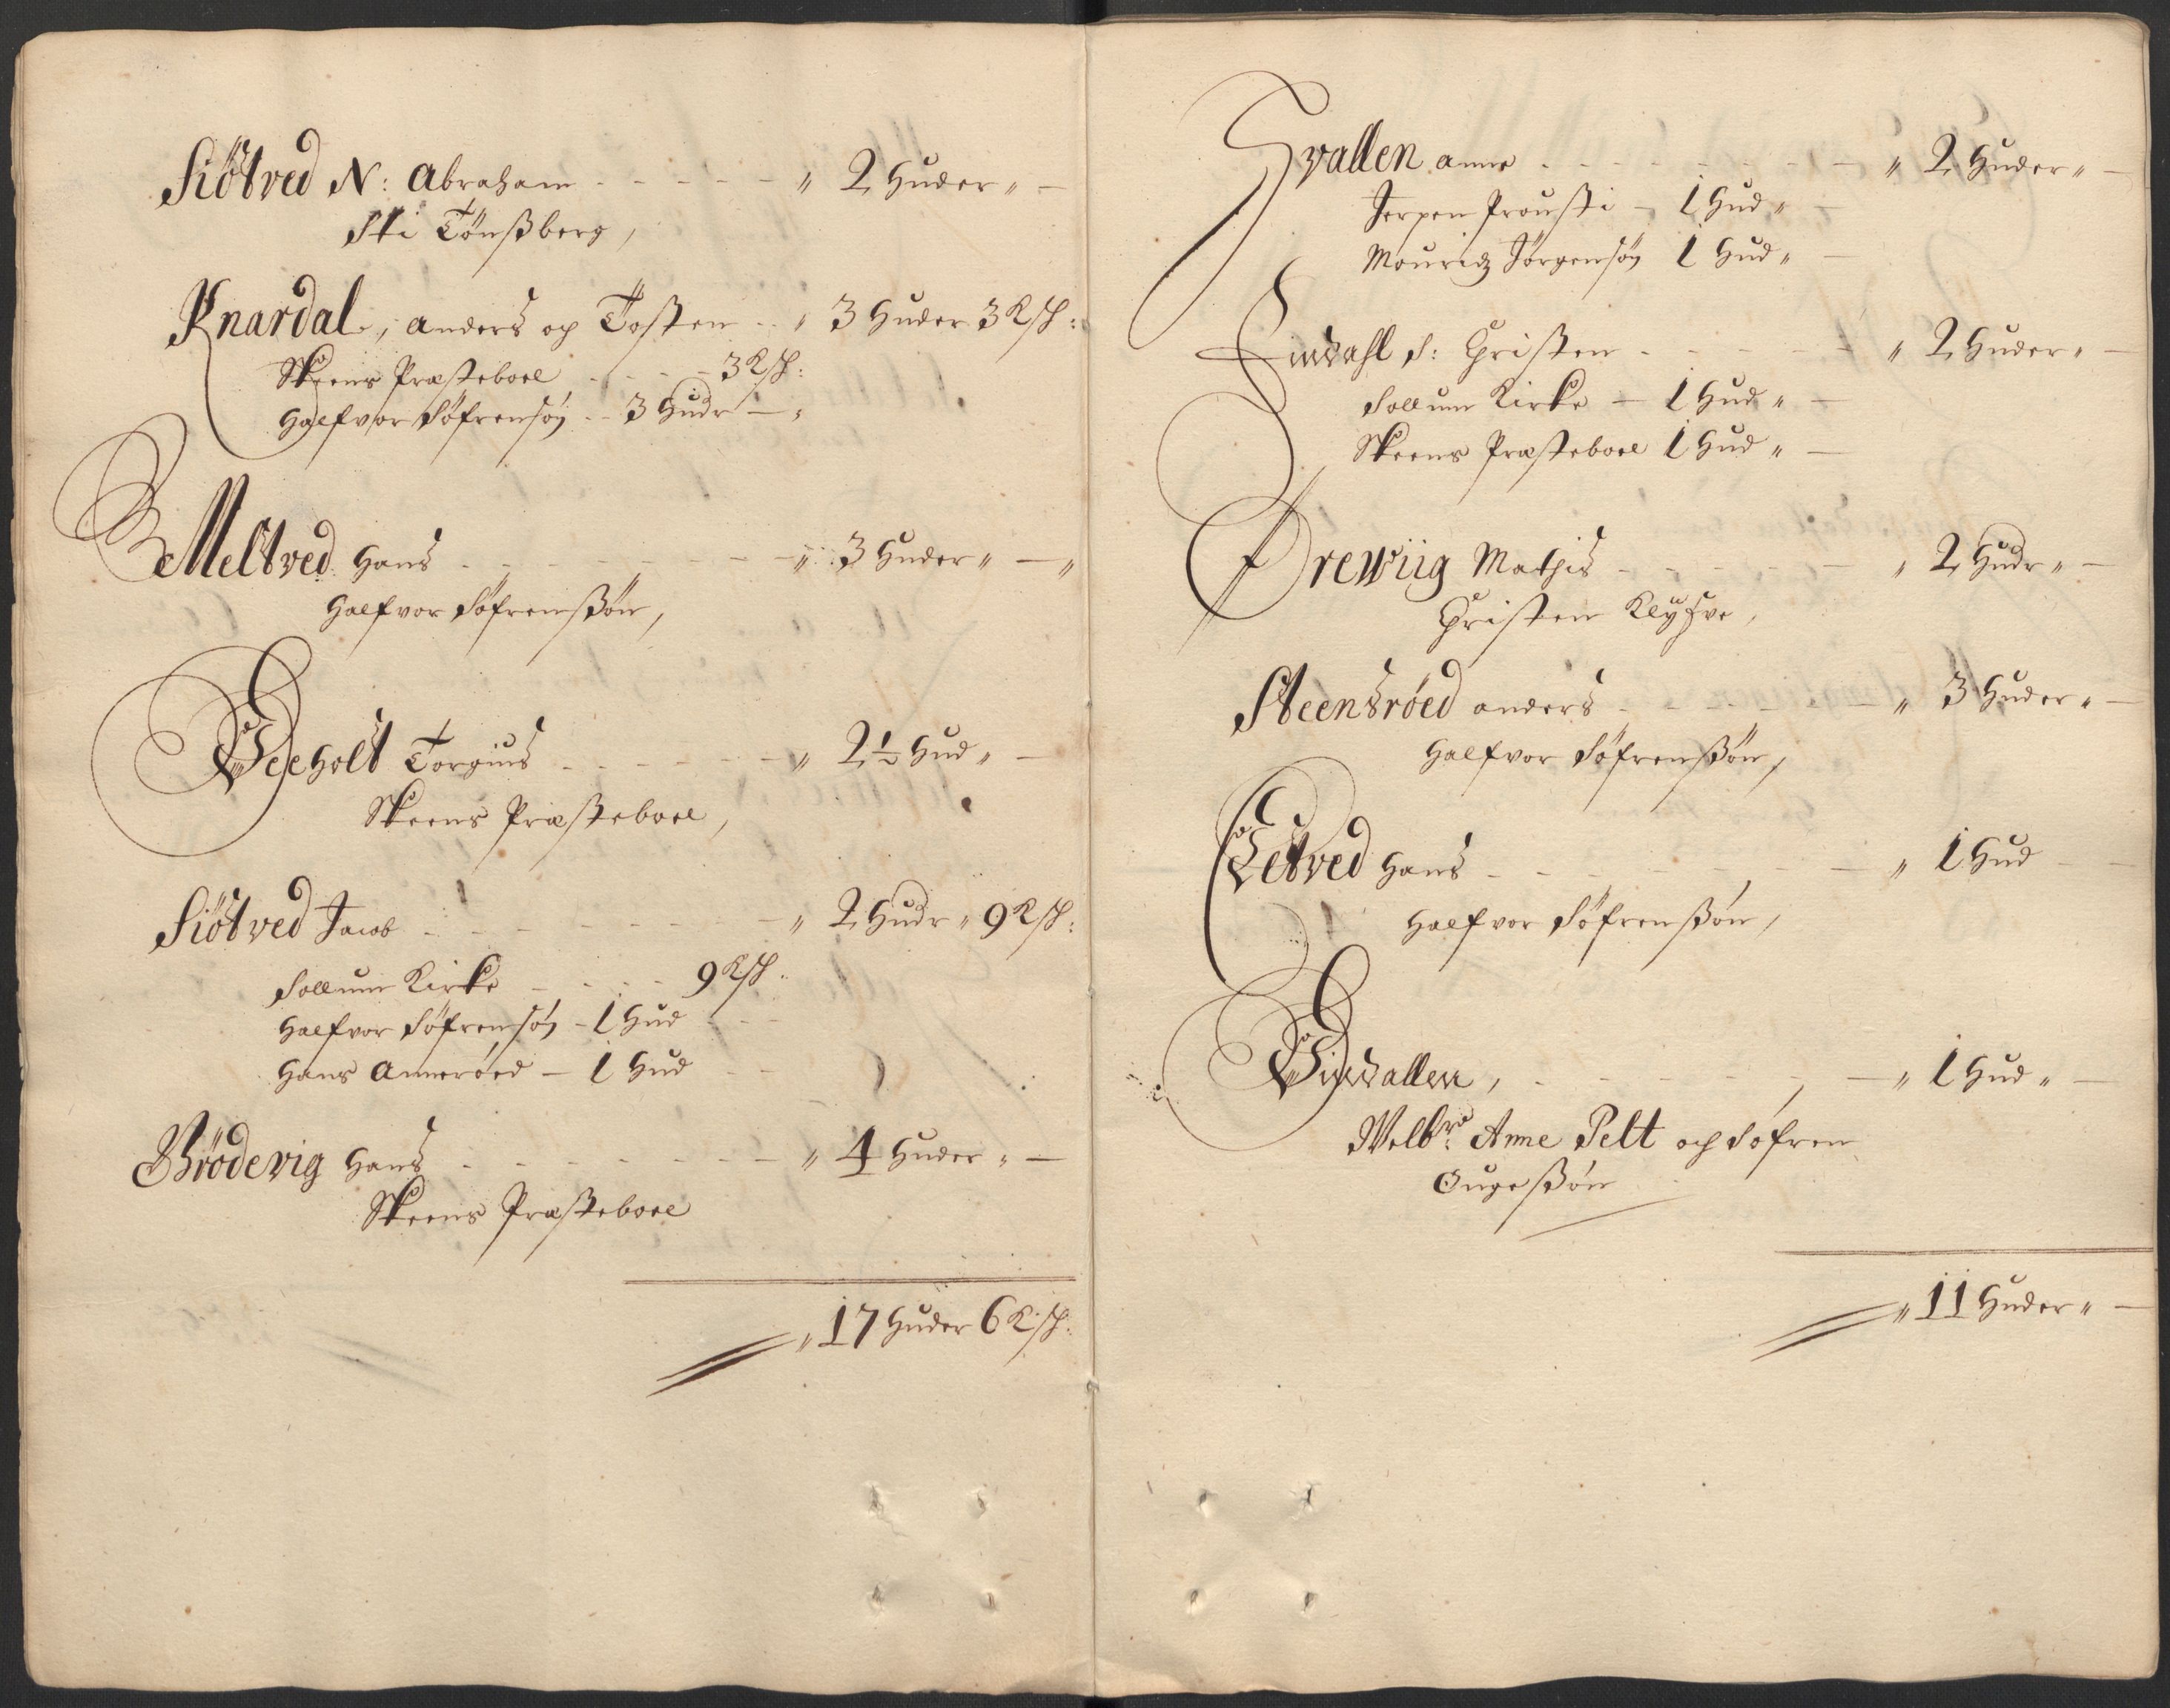 Siötved N: Abraham - - - - - " 2 Huder " -
Sti Tönßberg,
Knardal, Anders og Tosten - - " 3 Huder 3 Ksk:
Skeens Præsteboel - - - - 3 Ksk:
Halfvor Söfrensön - - 3 Hudr -
Meltved Hans - - - - - - - " 3 Huder " - "
Halfvor Söfrenßön,
Veeholt Torgius - - - - - " 2½ Hud " -
Skeens Præsteboel,
Siötved Jacob - - - - - - " 2 Hudr " 9 Ksk:
Sollum Kirke - - - - 9 Ksk:
Halfvor Söfrensön - 1 Hud - -
Hans Anneröed - 1 Hud - -
Brödevig Hans - - - - - - " 4 Huder " -
Skeens Præsteboel
" 17 Huder 6 Ksk:
vallen Anne - - - - - - " 2 Huder " -
Jerpen Prousti - 1 Hud " -
Mouridz Jörgensön 1 Hud " -
dahl S: Christen - - - - - " 2 Huder " -
Sollum Kirke - 1 Hud " -
Skeens Præsteboel 1 Hud " -
Drewiig Mathis - - - - - " 2 Hudr " -
Christen Klyfve,
Steensröed Anders - - - - - " 3 Huder " -
Halfvor Söfrenßön,
Letved Hans - - - - - - " 1 Hud -
Halfvor Söfrenßön,
vallen, - - - - - - " 1 Hud " -
Welbre: Anne Pelt og Söfren
Ougeßön
" 11 Huder " -